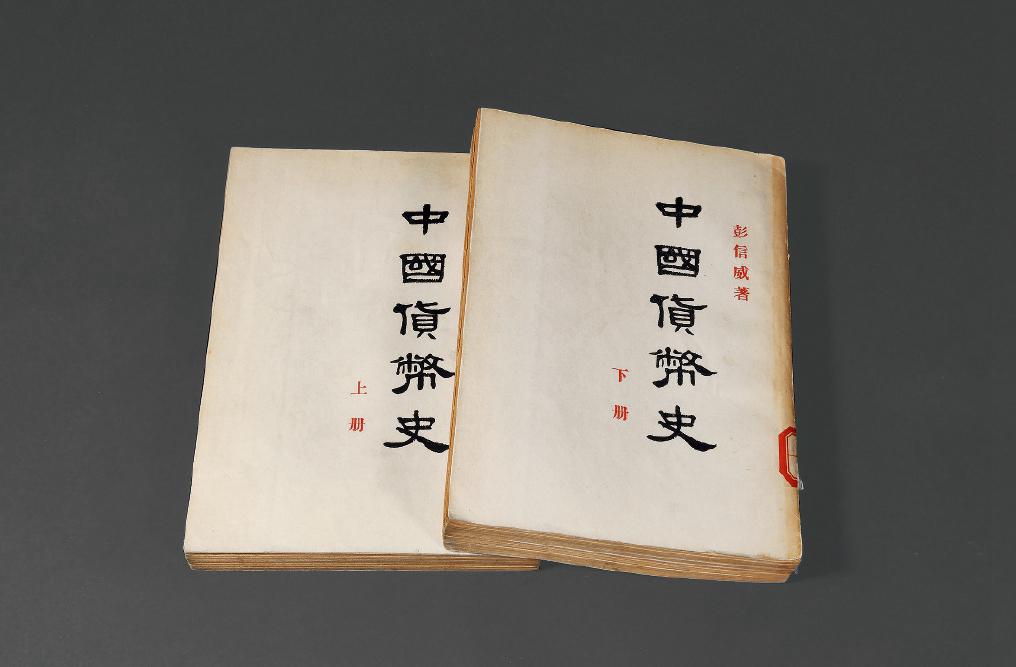 中國貨幣史
上册
彭信威著
中國貨幣史
下册